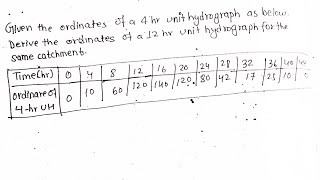 Given the ordinates of a 4 hr unit hydrograph as below.
Derive the ordinates of a 12 hr unit hydrograph for the
same catchment.
Time(hr) 0 4 8 12 16 20 24 28 32 36 40 44
Ordinate of 4-hr UH 0 10 60 120 140 120 80 42 17 25 10 0